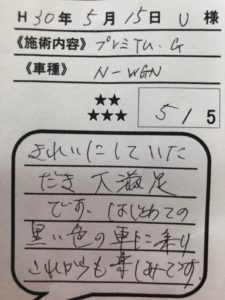 H 30年 5月 15日 U 様
《施術内容》プレミアム・G
《車種》 N-WGN
★★
★★★
5 / 5
きれいにしていた
だき大満足
です。はじめての
黒い色の車に乗り
これからも楽しみです。